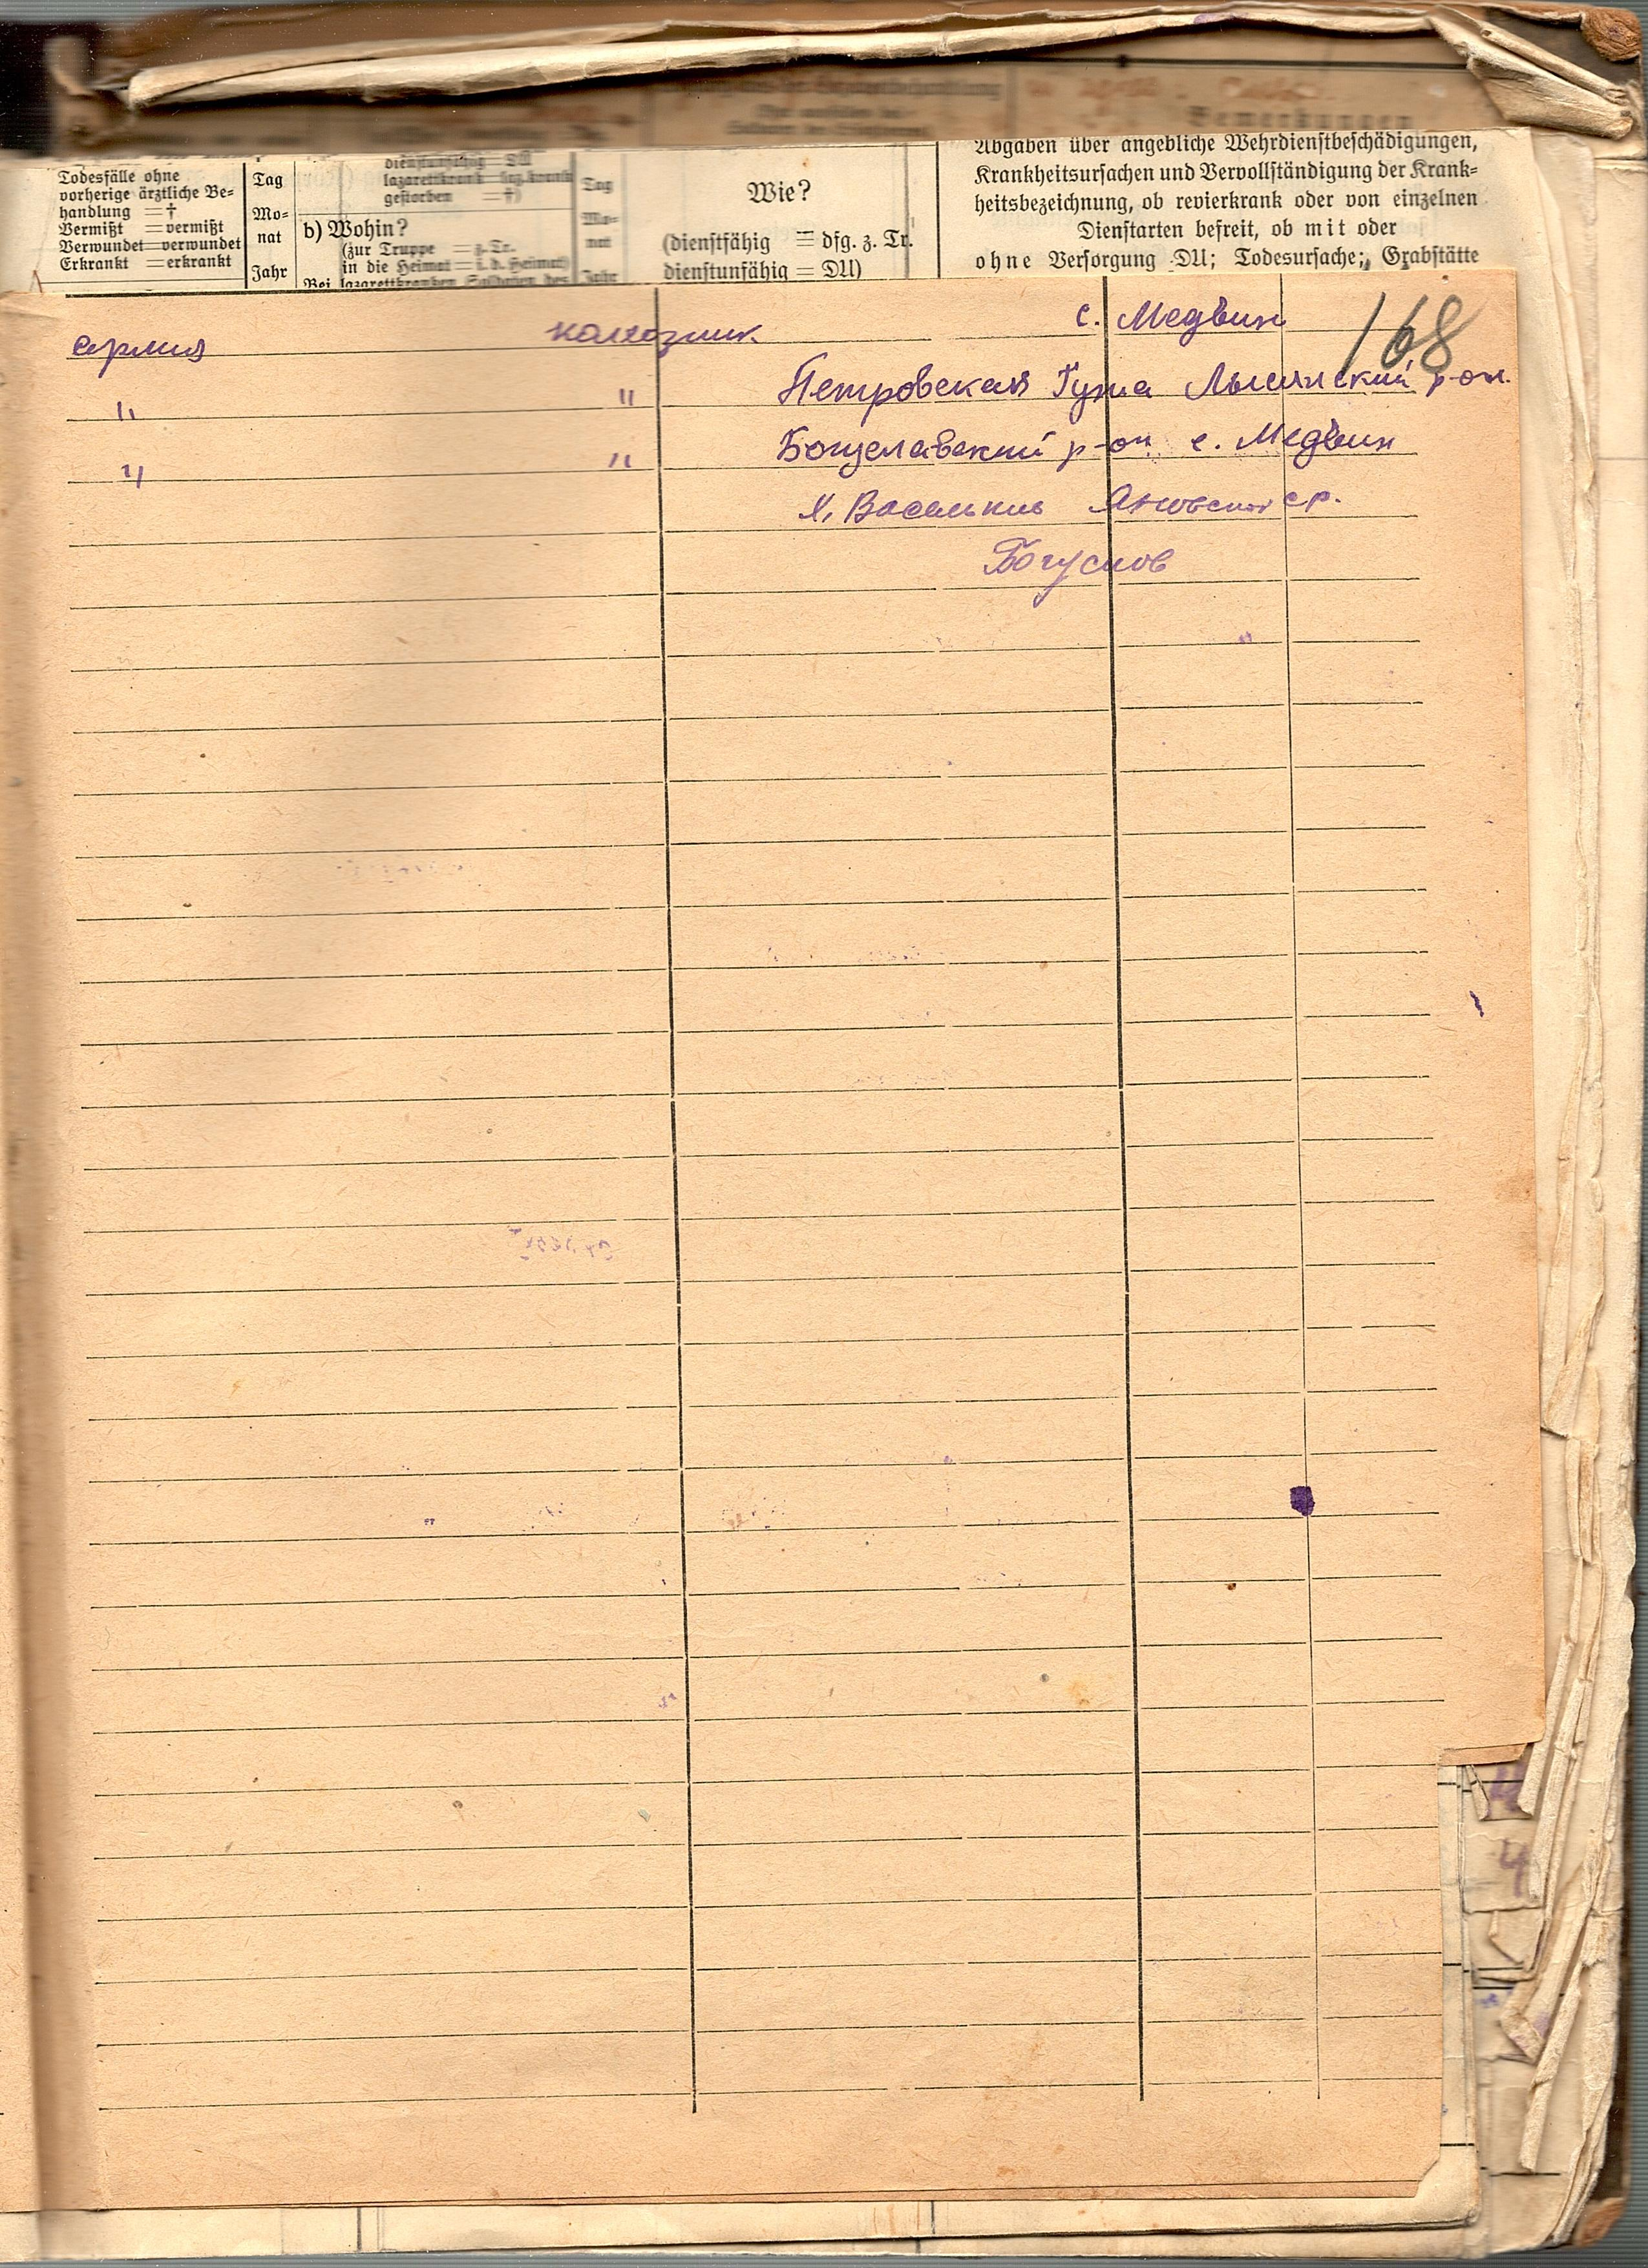 Todesfälle ohne
vorherige ärztliche Be-
handlung = †
Vermißt = vermißt
Verwundet = verwundet
Erkrankt = erkrankt
Tag
Mo-
nat
Jahr
dienstunfähig = DU
lazarettkrank = laz.krank
gestorben = †)
b) Wohin?
(zur Truppe = z. Tr.
in die Heimat = i. d. Heimat)
Bei lazarettkranken Soldaten des
Tag
Mo-
nat
Jahr
Wie?
(dienstfähig = dfg. z. Tr.
dienstunfähig = DU)
Abgaben über angebliche Wehrdienstbeschädigungen,
Krankheitsursachen und Vervollständigung der Krank-
heitsbezeichnung, ob revierkrank oder von einzelnen
Dienstarten befreit, ob mit oder
ohne Versorgung DU; Todesursache; Grabstätte
168
армия колхозник с. Медвин
" " Петровская Гута Лысянский р-он.
" " Богуславский р-он с. Медвин
Богуслов